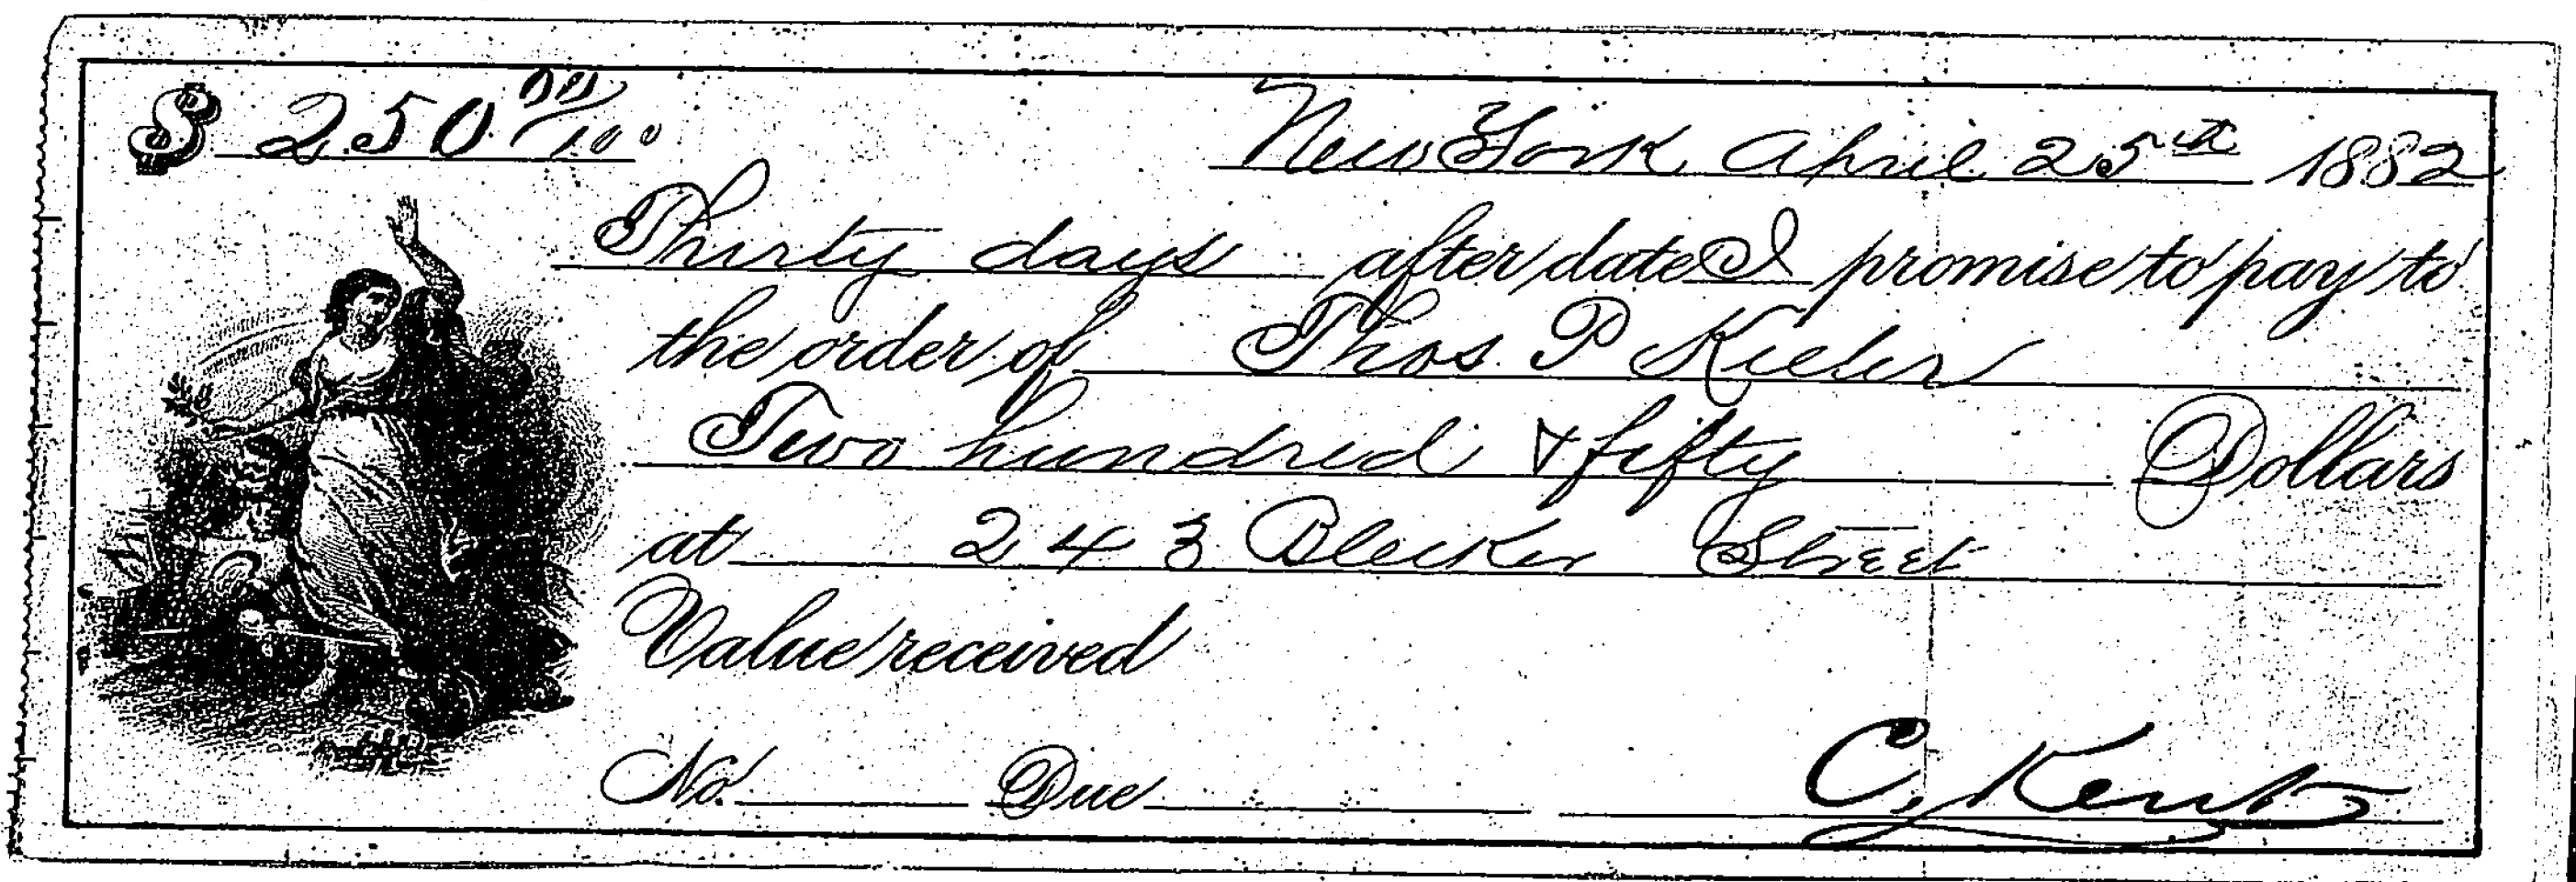 $ 250 00/100 New York April 25th 1882
Thirty days after date I promise to pay to
the order of Thos P
Two hundred & fifty Dollars
at 243 Blecker Street
Value received
No. Due C. Kent